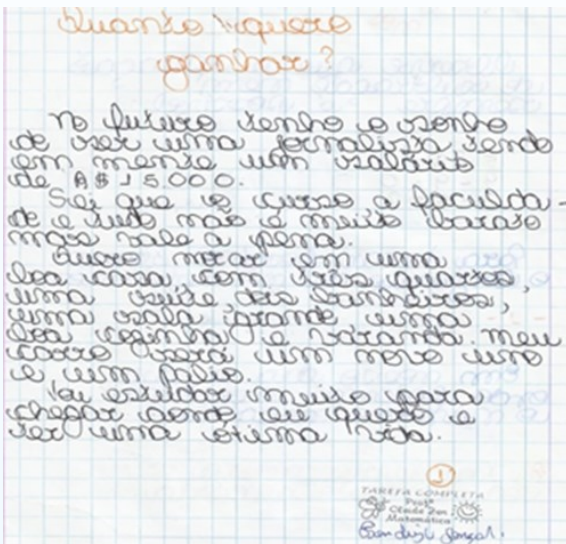 Quanto quero
ganhar?
No futuro tenho o sonho
de ser uma jornalista, tendo
em mente um salário
de R$ 15.000.
Sei que o curso a faculda-
de e tudo não é muito barato
mas vale a pena.
Quero morar em uma
boa casa, com três quartos,
uma suíte, dois banheiros,
uma sala grande uma
boa cozinha e varanda. Meu
carro será um novo uno
e um palio.
Vou estudar muito para
chegar aonde eu quero e
ter uma ótima vida.
1
TAREFA COMPLETA
Profª
Matemática